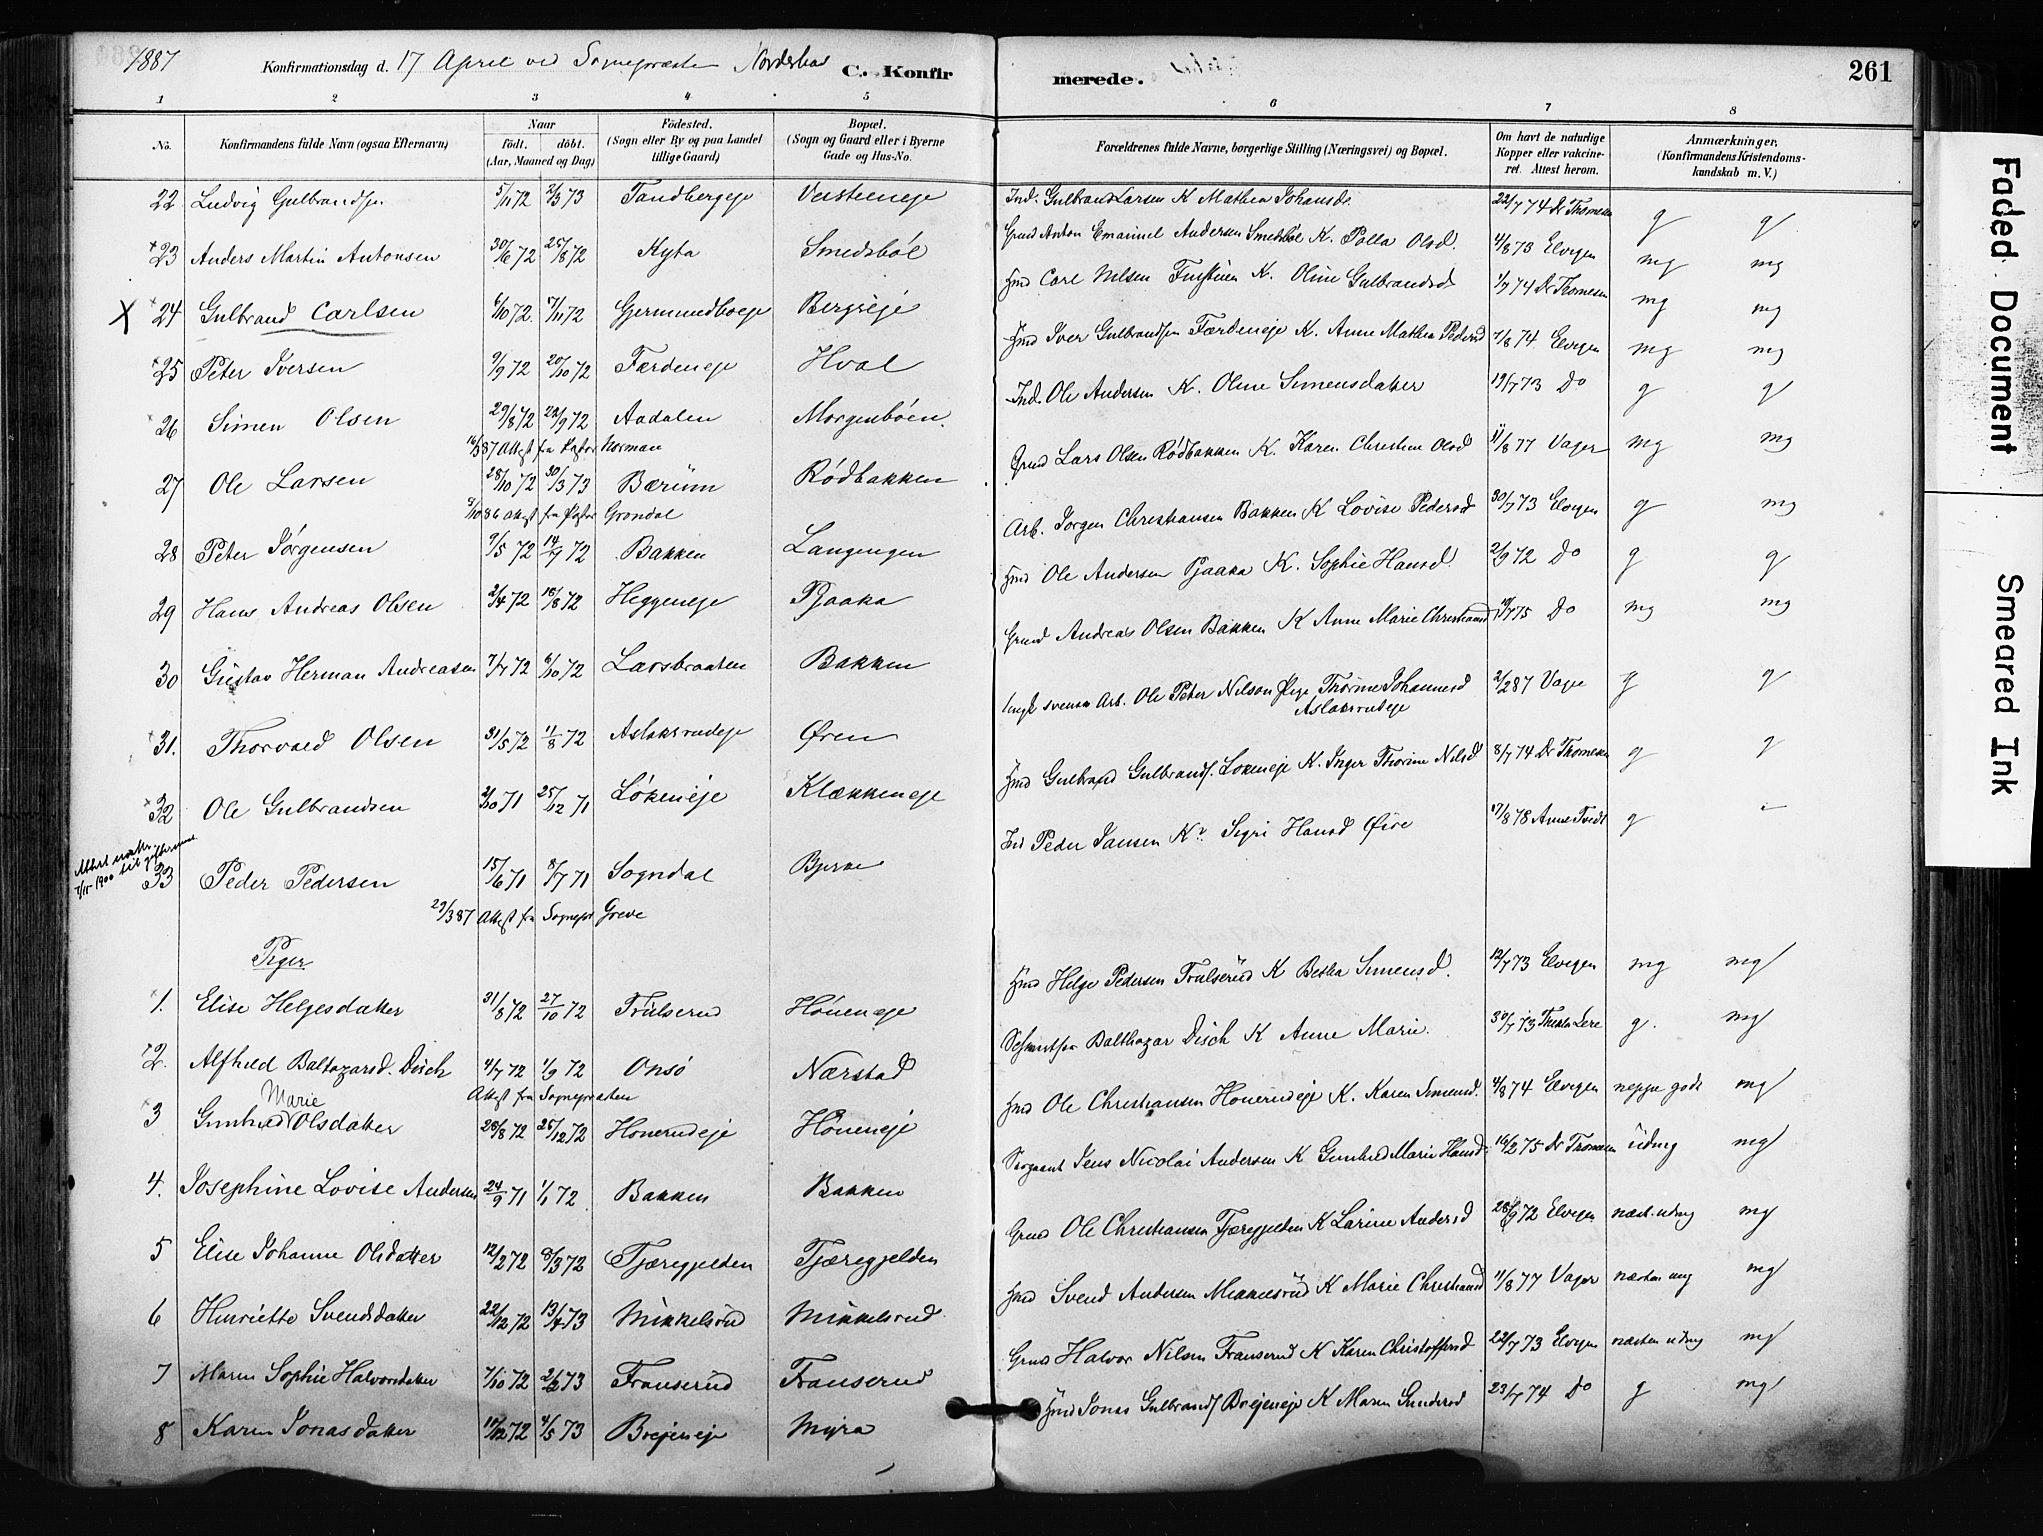 1887
Konfirmationsdag d. 17 April ved Sognepræsten Norderhov C. Konfirmerede. 261
1 2 3 4 5 6 7 8
No. Konfirmandens fulde Navn (ogsaa Efternavn) Naar født. døbt. (Aar, Maaned og Dag) Fødested. (Sogn eller By og paa Landet tillige Gaard) Bopæl. (Sogn og Gaard eller i Byerne Gade og Hus-No. Forældrenes fulde Navne, borgerlige Stilling (Næringsvei) og Bopæl. Om havt de naturlige Kopper eller vakcineret. Attest herom. Anmærkninger, (Konfirmandens Kristendomskundskab m. V.)
22 Ludvig Gulbrandsen 5/11 72 2/3 73 Tandbergeje Veisteneje Ind. Gulbrand Larsen K Mathea Johansd. 22/7 74 Dr Thomesen g g
23 Anders Martin Antonsen 30/6 72 25/8 72 Kyta Smedsbøl Grmd Anton Emanuel Andersen Smedsbøl K. Polla Olsd. 4/8 73 Elvigen mg mg
X 24 Gulbrand Carlsen 6/10 72 17/11 72 Gjermundboeje Bergseje Hmd Carl Nilsen K. Oline Gulbrandsd 1/7 74 Dr Thomesen mg mg
25 Peter Iversen 9/9 72 20/10 72 Færdeneje Hval Hmd Iver Gulbrandsen Færdeneje K. Anne Mathea Pedersd 7/8 74 Elvigen mg mg
26 Simen Olsen 29/8 72 22/9 72 Aadalen Morgenbøen Ind. Ole Andersen K. Oline Simensdatter 19/7 73 Do g g
16/3 87 Attest fra Pastor Norman
27 Ole Larsen 28/10 72 30/3 73 Bærum Rødbakken Grmd Lars Olsen Rødbakken K. Karen Christine Olsd 11/8 77 Vager mg mg
9/10 86 Attest fra Pastor Grøndal
28 Peter Jørgensen 9/5 72 14/7 72 Bakken Langengen Arb. Jørgen Christiansen Bakken K Lovise Pedersd 30/7 73 Elvigen g mg
29 Hans Andreas Olsen 2/4 72 18/8 72 Heggeneje Pjaaka Hmd Ole Andersen Pjaaka K. Sophie Hansd. 2/9 72 Do g g
30 Gustav Herman Andreasen 7/7 72 6/10 72 Larsbraaten Bakken Grmd Andreas Olsen Bakken K Anne Marie Christiansd 19/7 75 Do mg mg
31. Thorvald Olsen 31/5 72 11/8 72 Aslaksrudeje Øren Ungk svensk Arb. Ole Peter Nilson Pige Thorine Johannesd Aslaksrudeje 2/2 87 Vage g g
32 Ole Gulbrandsen 2/10 71 25/12 71 Løkeneje Klækkeneje Hmd Gulbrand Gulbrands. Løkeneje K. Inger Thorine Nilsd 8/7 74 Dr Thomesen g g
7/11 1900 til
33 Peder Pedersen 15/6 71 8/7 71 Sogndal Bjerke Ind Peder Jansen Kv. Sigri Hansd Øire 17/8 78 Arne Tvedt g
29/3 87 Attest fra Sognepr Greve
Piger
1. Elise Helgesdatter 31/8 72 27/10 72 Trulserud Høneneje Hmd Helge Pedersen Trulserud K Bertha Simensd. 12/7 73 Elvigen mg mg
2. Alfhild Baltazarsd. Disch 4/7 72 1/9 72 Onsø Nærstad Balthazar Disch K Anne Marie. 30/7 73 g. mg
Attest fra Sognepræsten
3 Gunhild Marie Olsdatter 28/8 72 26/12 72 Honerudeje Høneneje Hmd Ole Christiansen Honerudeje K. Karen Simensd. 4/8 74 Elvigen neppe godt mg
4. Josephine Lovise Andersen 24/9 71 1/1 72 Bakken Bakken Sergeant Jens Nicolai Andersen K Gunhild Marie Hansd. 16/2 75 Dr Thomesen udmg mg
5 Elise Johanne Olsdatter 12/2 72 8/3 72 Tjæregjelden Tjæregjelden Grmd Ole Christiansen Tjæregjelden K Larine Andersd 28/9 72 Elvigen næst. udmg mg
6 Henriette Svendsdatter 22/12 72 13/4 73 Mikkelsrud Mikkelsrud Hmd Svend Andersen Mikkelsrud K Marie Christiansd 11/8 77 Vager næsten mg mg
7 Maren Sophie Halvorsdatter 7/10 72 2/2 73 Franserud Franserud Grmd Halvor Nilsen Franserud K Karen Christoffersd 22/7 73 Elvigen næsten udmg mg
8 Karen Jonasdatter 10/12 72 4/5 73 Brejeneje Myra Hmd Jonas Gulbrands Brejeneje K Maren Gundersd 23/7 74 Do g mg
Faded Document Smeared Ink